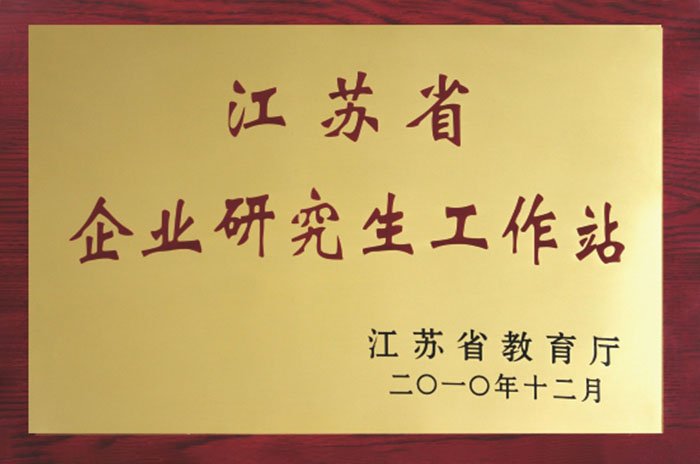 江苏省
企业研究生工作站
江苏省教育厅
二〇一〇年十二月